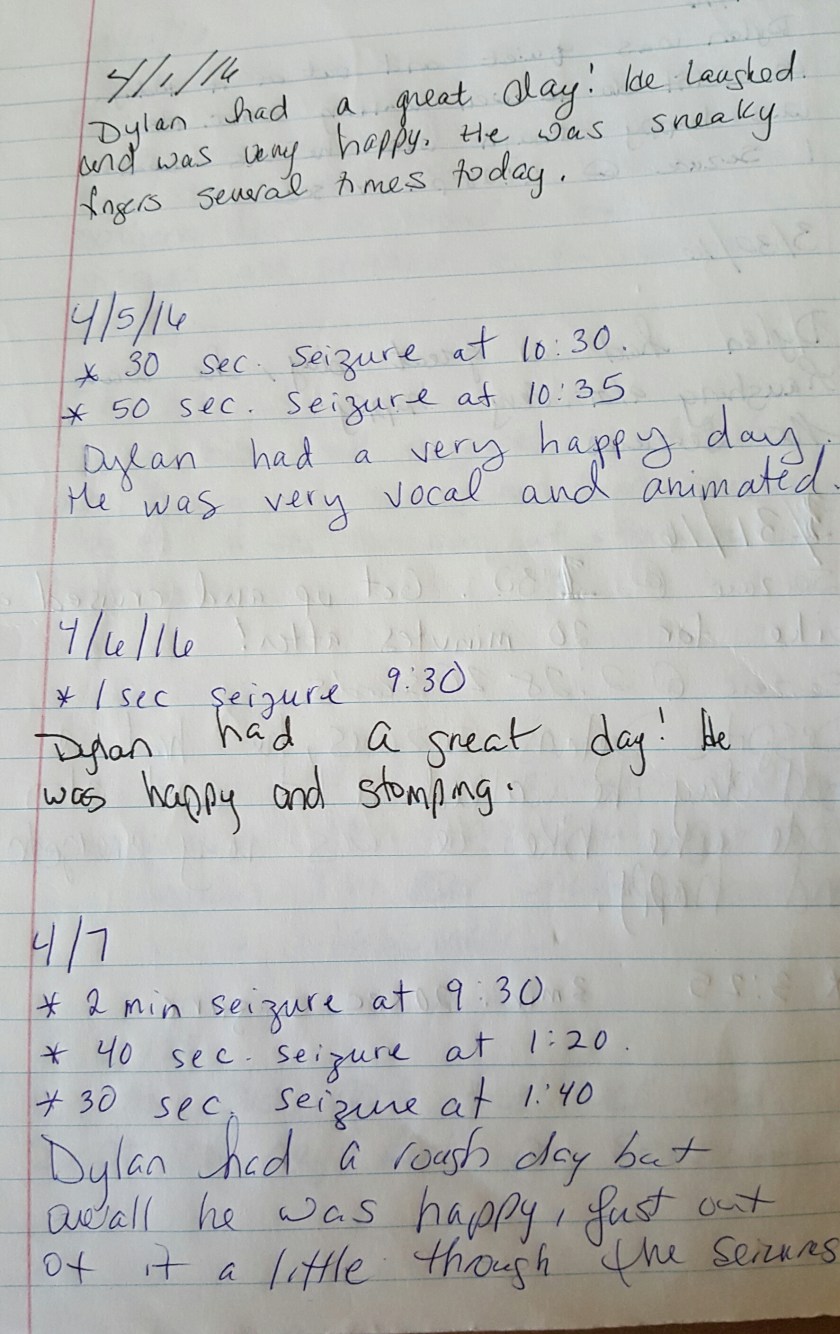 4/1/16
Dylan had a great day! He laughed
and was very happy. He was sneaky
fingers several times today.
4/5/16
* 30 sec. seizure at 10:30.
* 50 sec. seizure at 10:35
Dylan had a very happy day.
He was very vocal and animated.
4/6/16
* 1 sec seizure 9:30
Dylan had a great day! He
was happy and stomping.
4/7
* 2 min seizure at 9:30
* 40 sec. seizure at 1:20.
* 30 sec. seizure at 1:40
Dylan had a rough day but
overall he was happy, just out
of it a little through the seizures